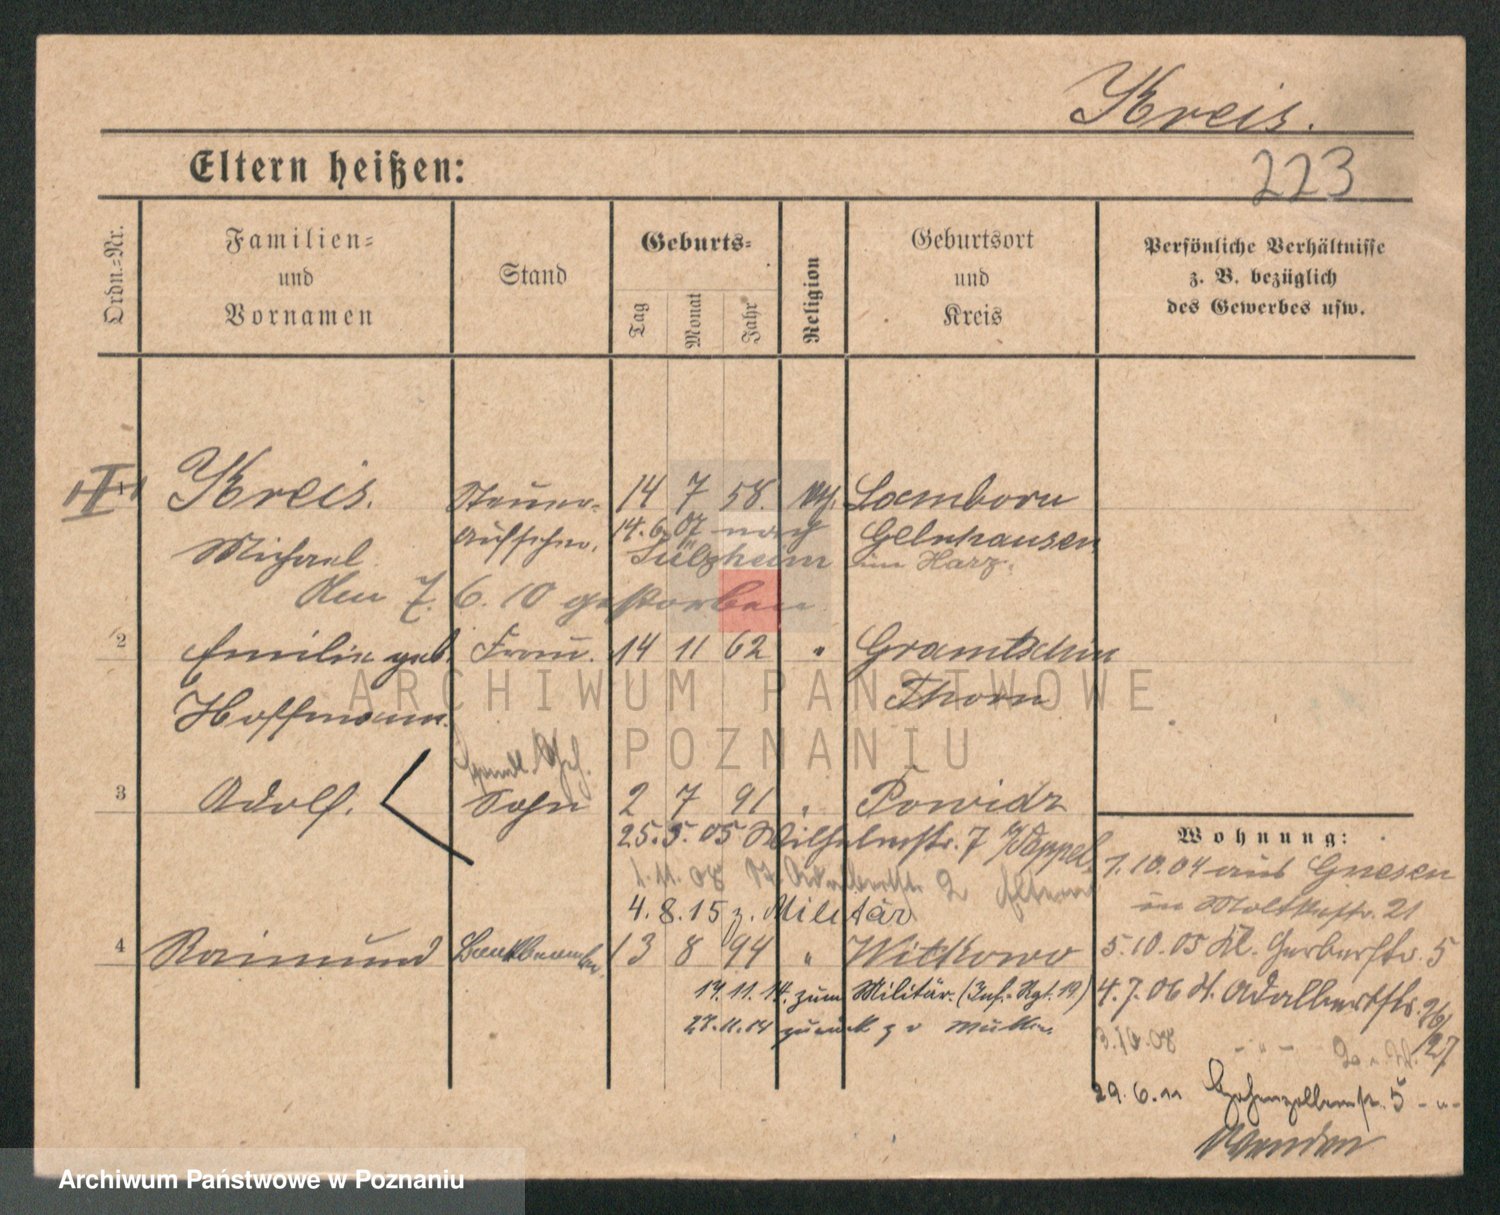 Kreis.
Eltern heißen:
223
Ordn.-Nr.
Familien-
und
Vornamen
Stand
Geburts-
Tag
Monat
Jahr
Religion
Geburtsort
und
Kreis
Persönliche Verhältnisse
z. B. bezüglich
des Gewerbes usw.
1 Kreis. Steuer- 14 7 58. Lamborn
Michael Aufseher. 14.6.07 nach Gelnhausen
in Sülzheim im Harz.
den 7. 6. 10 gestorben
2 Emilie geb. Frau. 14 11 62 " Gramtschin
Hoffmann. Thorn
3 Adolf. Sohn 2 7 91 " Powidz
25.5.05 Wilhelmstr. 7
1.11.08 2 Eltern
4.8.15 z. Militär
4 Raimund 13 8 94 " Witkowo
14. zum Militär. (Inf. Rgt. 19)
zurück z
Wohnung:
1.10.04 aus Gnesen
in Moltkestr. 21
5.10.05 Kl. Gerberstr. 5
4.7.06 St. Adalbertstr. 26/27
3.10.08
29.6.11 Hohenzollernstr. 5
Wenden
ARCHIWUM PAŃSTWOWE
POZNANIU
Archiwum Państwowe w Poznaniu